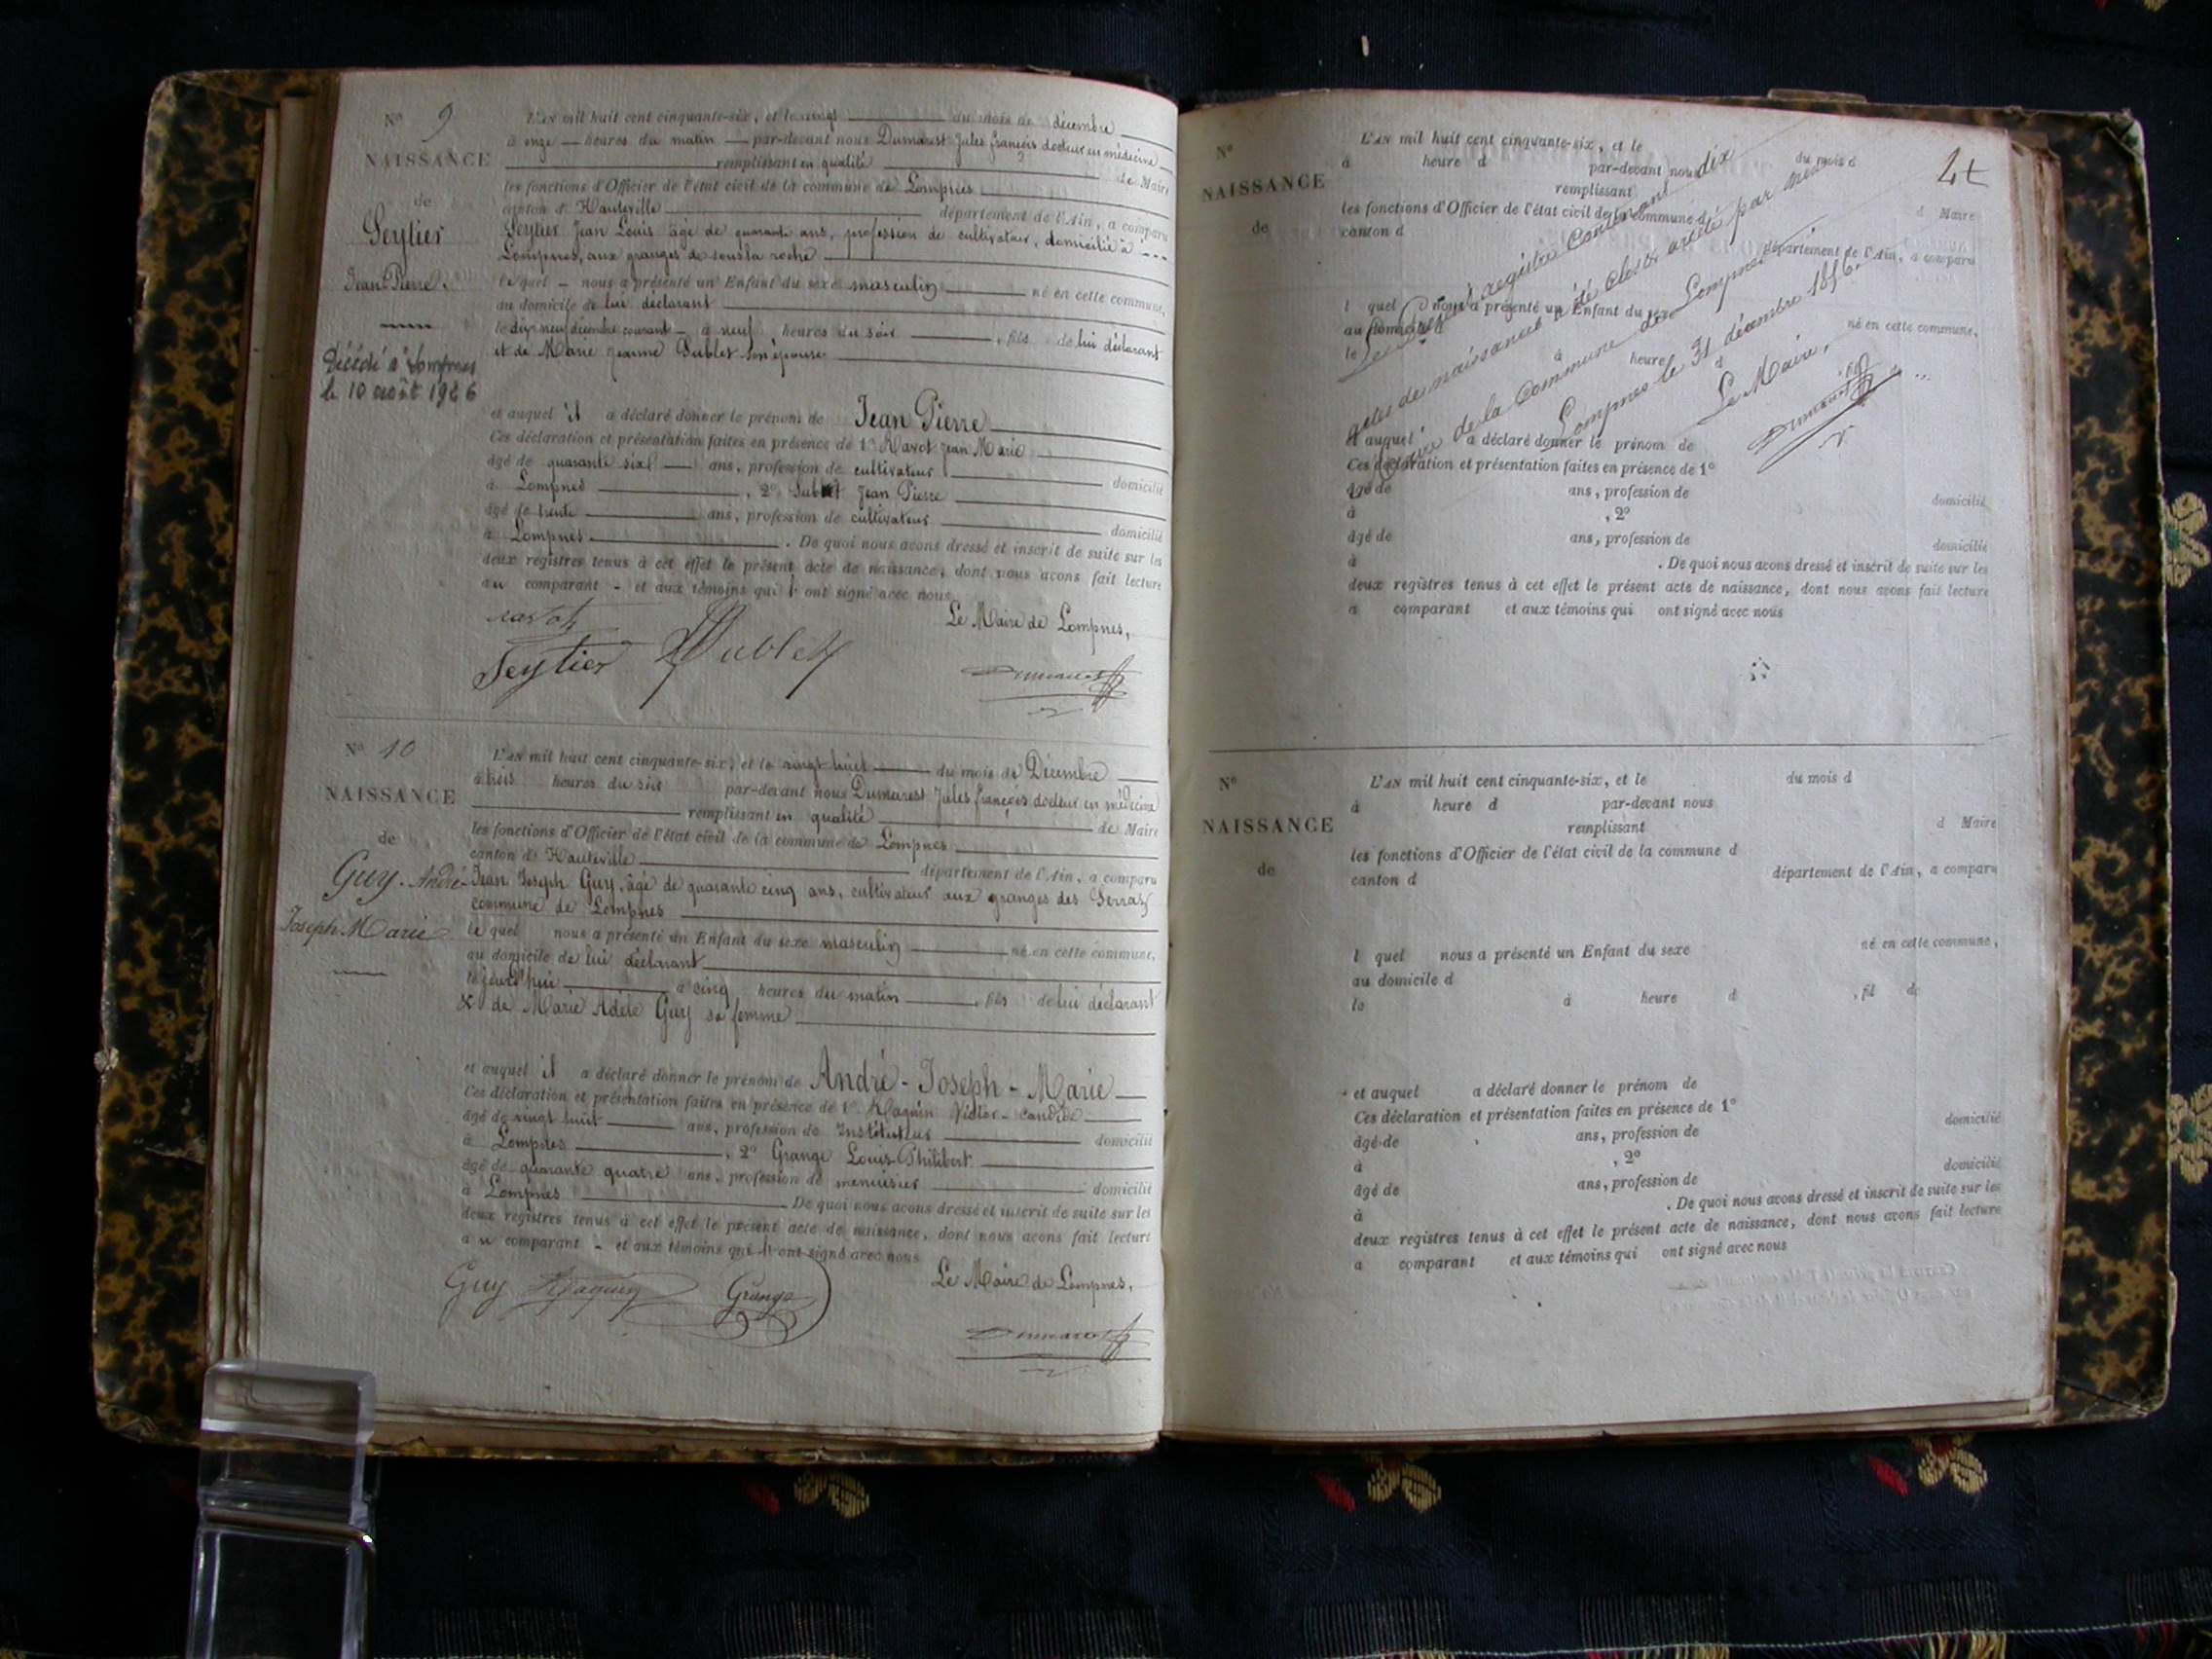 N° 9
NAISSANCE
de
Seytier
Jean Pierre.
Décédé à Lompnes
le 10 août 1926
L'AN mil huit cent cinquante-six, et le vingt du mois de décembre
à onze heures du matin par-devant nous Dumarest Jules françois docteur en médecine
remplissant en qualité de Maire
les fonctions d'Officier de l'état civil de la commune de Lompnes
canton d' Hauteville département de l'Ain, a comparu
Seytier Jean Louis âgé de quarante ans, profession de cultivateur, domicilié à
Lompnes, aux granges de sous la roche
lequel nous a présenté un Enfant du sexe masculin né en cette commune,
au domicile de lui déclarant
le dix neuf décembre courant à neuf heures du soir, fils de lui déclarant
et de Marie Jeanne Sublet son épouse
et auquel il a déclaré donner le prénom de Jean Pierre
Ces déclaration et présentation faites en présence de 1° Ravot Jean Marie
âgé de quarante six ans, profession de cultivateur domicilié
à Lompnes, 2° Sublet Jean Pierre
âgé de trente ans, profession de cultivateur domicilié
à Lompnes. De quoi nous avons dressé et inscrit de suite sur les
deux registres tenus à cet effet le présent acte de naissance, dont nous avons fait lecture
au comparant et aux témoins qui ont signé avec nous
Le Maire de Lompnes,
ravot
Seytier Sublet Dumarest
N° 10
NAISSANCE
de
Guy. André-
Joseph Marie
L'AN mil huit cent cinquante-six, et le vingt huit du mois de Décembre
à trois heures du soir par-devant nous Dumarest Jules françois docteur en médecine
remplissant en qualité de Maire
les fonctions d'Officier de l'état civil de la commune de Lompnes
canton d' Hauteville département de l'Ain, a comparu
Jean Joseph Guy, âgé de quarante cinq ans, cultivateur aux granges des Serraz
commune de Lompnes
lequel nous a présenté un Enfant du sexe masculin né en cette commune,
au domicile de lui déclarant
lejourd'hui à cinq heures du matin, fils de lui déclarant
& de Marie Adèle Guy sa femme
et auquel il a déclaré donner le prénom de André - Joseph - Marie
Ces déclaration et présentation faites en présence de 1° Maguin Victor - Candide
âgé de vingt huit ans, profession de Instituteur domicilié
à Lompnes, 2° Grange Louis Philibert
âgé de quarante quatre ans, profession de menuisier domicilié
à Lompnes. De quoi nous avons dressé et inscrit de suite sur les
deux registres tenus à cet effet le présent acte de naissance, dont nous avons fait lecture
au comparant et aux témoins qui ont signé avec nous
Le Maire de Lompnes,
Guy Maguin Grange
Dumarest
N°
NAISSANCE
de
L'AN mil huit cent cinquante-six, et le du mois d
à heure d par-devant nous
remplissant d Maire
les fonctions d'Officier de l'état civil de la commune d
canton d département de l'Ain, a comparu
l quel nous a présenté un Enfant du sexe né en cette commune,
au domicile d
le à heure d, fil de
et auquel a déclaré donner le prénom de
Ces déclaration et présentation faites en présence de 1°
âgé de ans, profession de domicilié
à , 2°
âgé de ans, profession de domicilié
à . De quoi nous avons dressé et inscrit de suite sur les
deux registres tenus à cet effet le présent acte de naissance, dont nous avons fait lecture
a comparant et aux témoins qui ont signé avec nous
Le présent registre contenant dix
actes de naissance a été clos & arrêté par nous
Maire de la Commune de Lompnes
Lompnes le 31 décembre 1856.
Le Maire,
Dumarest
N°
NAISSANCE
de
L'AN mil huit cent cinquante-six, et le du mois d
à heure d par-devant nous
remplissant d Maire
les fonctions d'Officier de l'état civil de la commune d
canton d département de l'Ain, a comparu
l quel nous a présenté un Enfant du sexe né en cette commune,
au domicile d
le à heure d , fil de
et auquel a déclaré donner le prénom de
Ces déclaration et présentation faites en présence de 1°
âgé de ans, profession de domicilié
à , 2°
âgé de ans, profession de domicilié
à . De quoi nous avons dressé et inscrit de suite sur les
deux registres tenus à cet effet le présent acte de naissance, dont nous avons fait lecture
a comparant et aux témoins qui ont signé avec nous